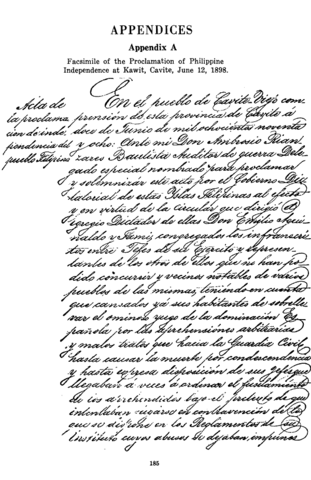 APPENDICES
Appendix A
Facsimile of the Proclamation of Philippine
Independence at Kawit, Cavite, June 12, 1898.
Acta de
la proclama
ción de inde
pendencia del
pueblo Filipino
En el pueblo de Cavite-Viejo com-
prensión de esta provincia de Cavite á
doce de Junio de mil ochocientos noventa
y ocho: Ante mi Don Ambrosio Rian
zares Bautista Auditor de guerra Dele
gado especial nombrado para proclamar
y solemnizar este acto por el Gobierno Dic
tatorial de estas Islas Filipinas al efecto
y en virtud de la circular que dirigió el
Egregio Dictador de ellas Don Emilio Agui
naldo y Famy, congregados los infrascrit
tos entre Jefes de su Ejército y represen
tantes de los otros de ellos que no han po
dido concurrir y vecinos notables de varios
pueblos de las mismas, teniendo en cuenta
que cansados ya sus habitantes de sobrelle
var el ominoso yugo de la dominación Es
pañola por las aprehensiones arbitrarias
y malos tratos que hacía la Guardia Civil
hasta causar la muerte por condescendencia
y hasta expresa disposición de sus Jefes que
llegaban á veces á ordenar el fusilamiento
de los aprehendidos bajo el pretexto de que
intentaban fugarse en contravención de lo
que se dispone en los Reglamentos de su
Instituto cuyos abusos se dejaban impunes
185